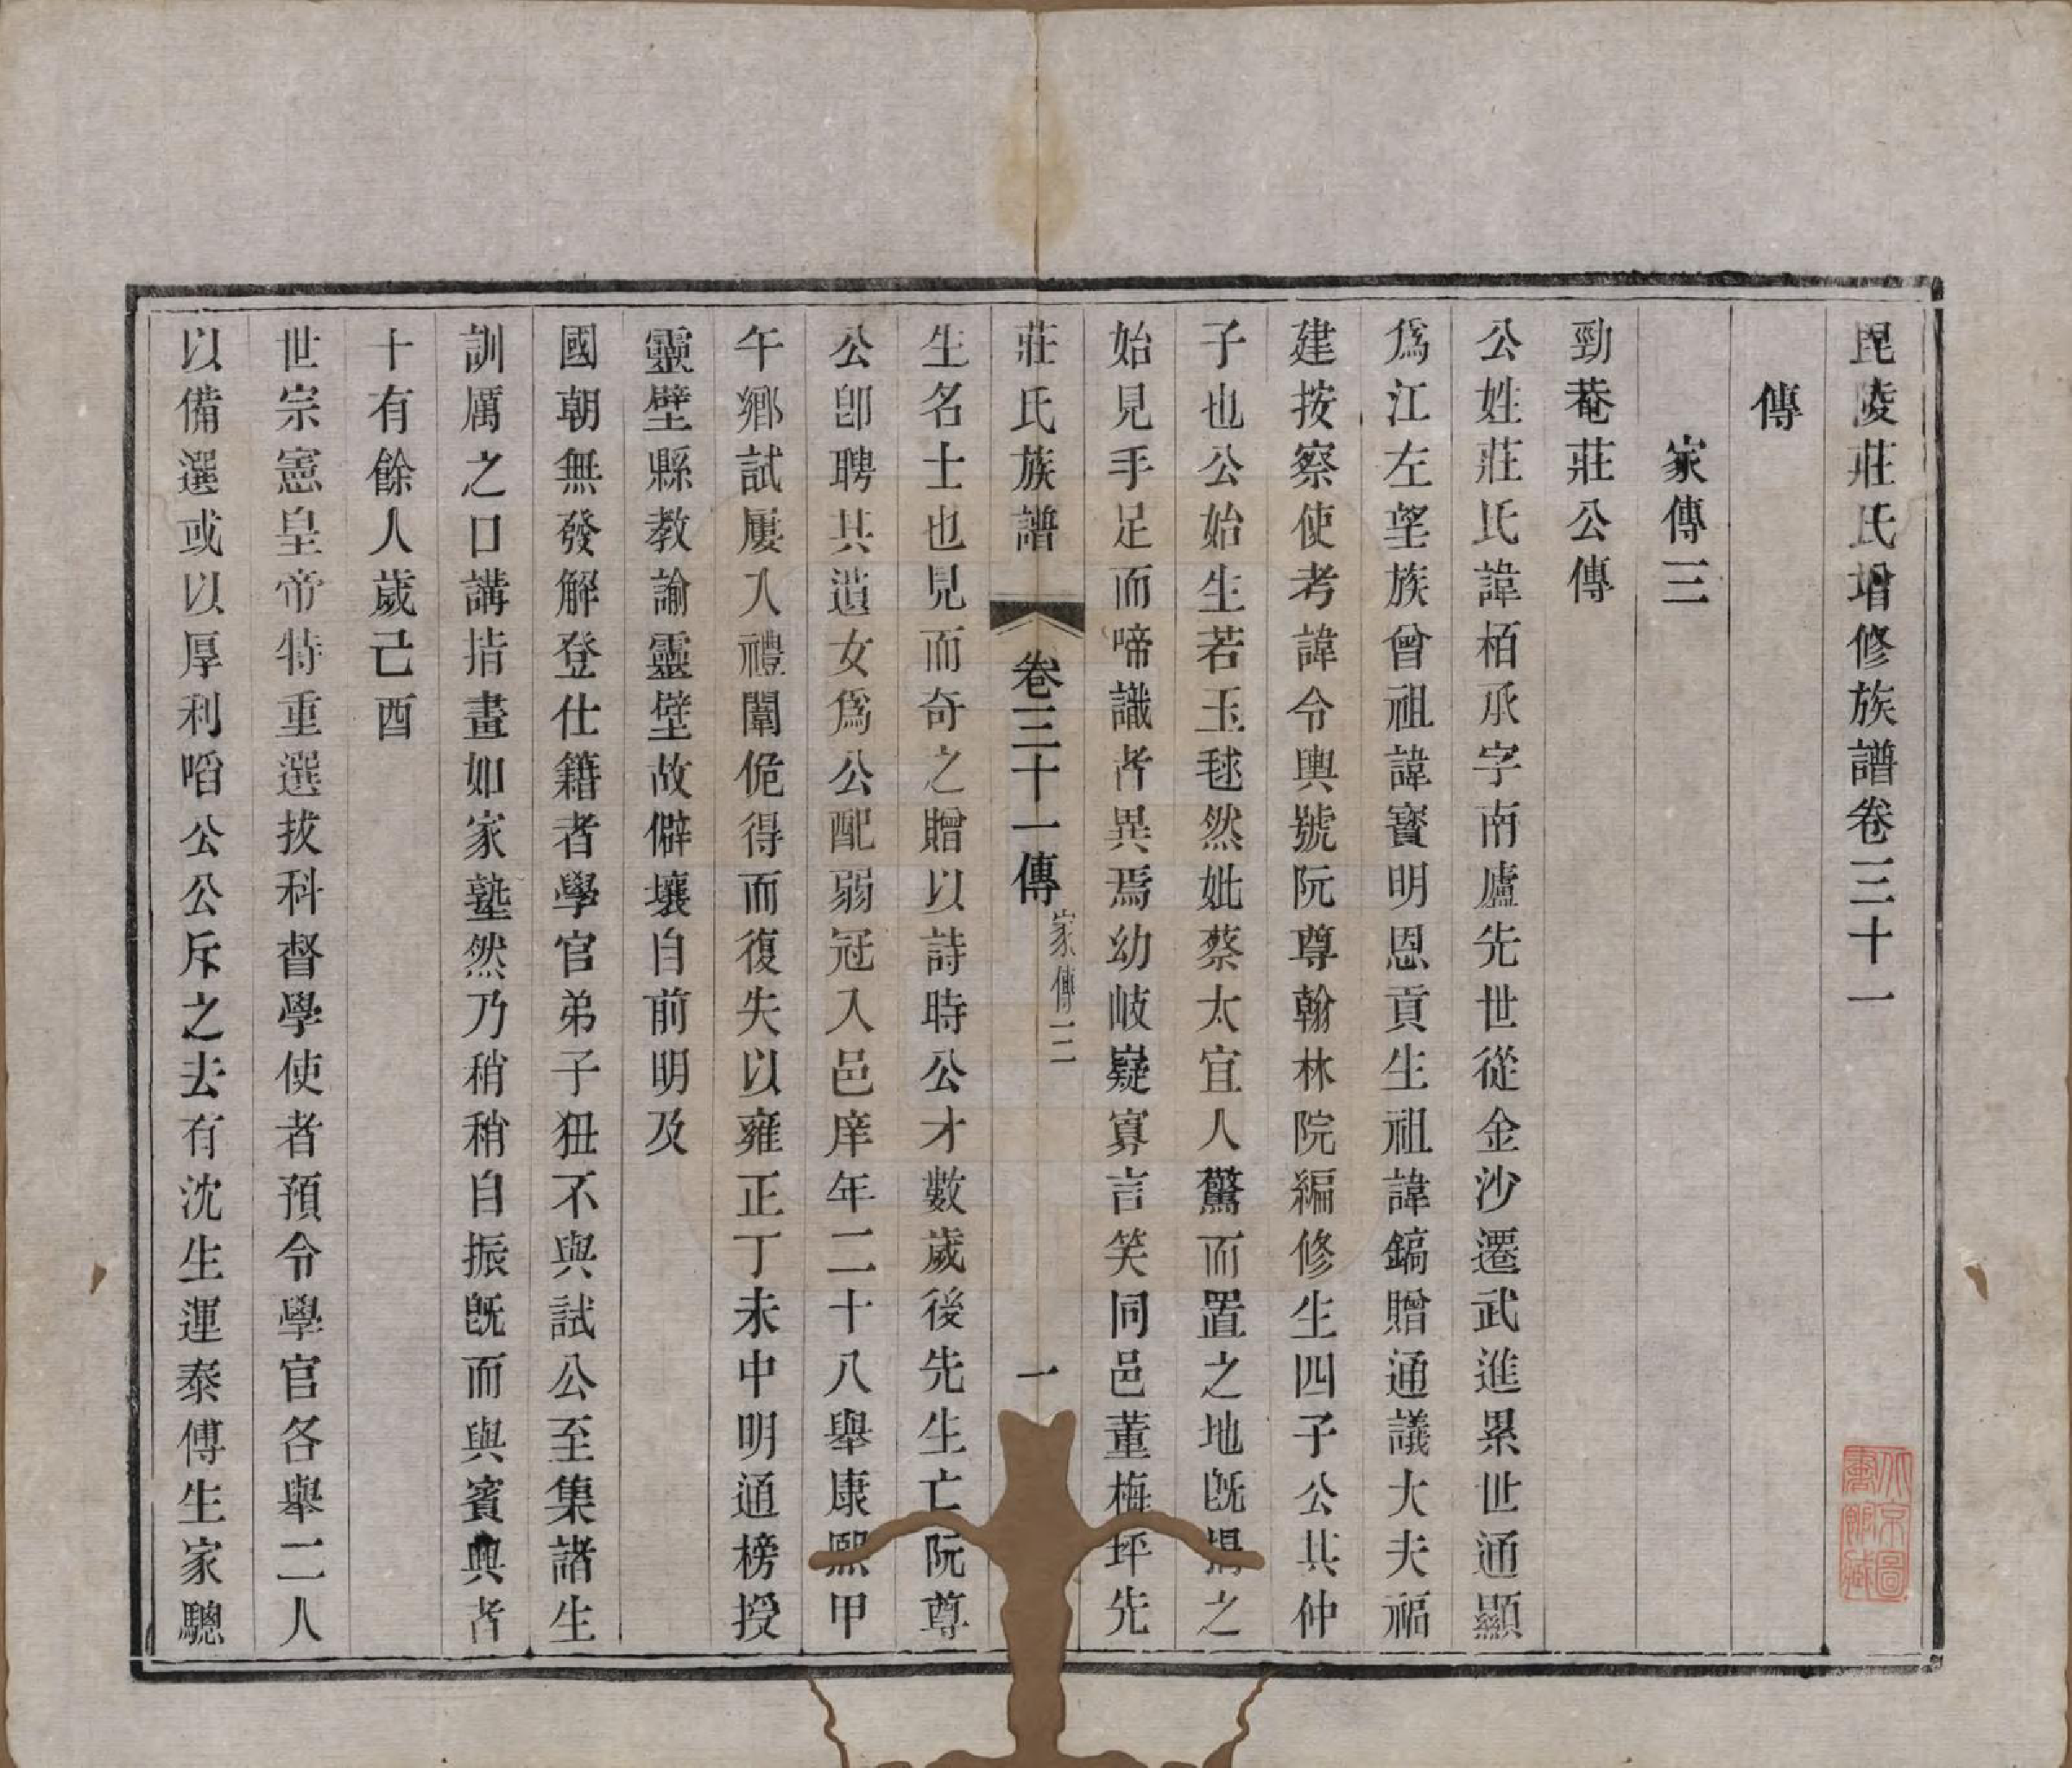 毘陵莊氏增修族譜卷三十一
傳
家傳三
勁菴莊公傳
公姓莊氏諱栢承字南廬先世從金沙遷武進累世通顯
爲江左望族曾祖諱寶明恩貢生祖諱鎬贈通議大夫福
建按察使考諱令輿號阮尊翰林院編修生四子公其仲
子也公始生若玉毬然妣蔡太宜人驚而置之地旣揭之
始見手足而啼識者異焉幼岐嶷寡言笑同邑董梅坪先
莊氏族譜 卷三十一傳 家傳三 一
生名士也見而奇之贈以詩時公才數歲後先生亡阮尊
公卽聘其遺女爲公配弱冠入邑庠年二十八舉康熙甲
午鄉試屢入禮闈俛得而復失以雍正丁未中明通榜授
靈壁縣教諭靈壁故僻壤自前明及
國朝無發解登仕籍者學官弟子狃不與試公至集諸生
訓厲之口講指畫如家塾然乃稍稍自振旣而與賓興者
十有餘人歲己酉
世宗憲皇帝特重選拔科督學使者預令學官各舉二人
以備選或以厚利啗公公斥之去有沈生運泰傅生家驄
京圖
藏